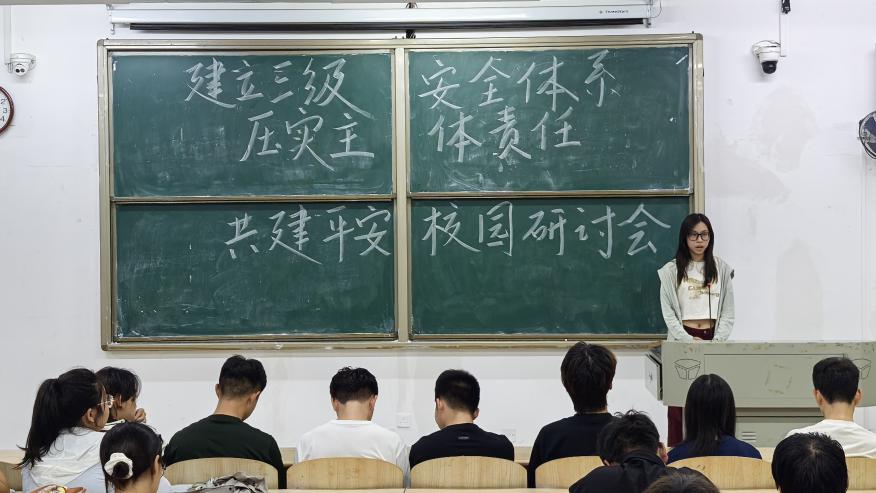 建立三级 安全体系
压实主 体责任
共建平安 校园研讨会